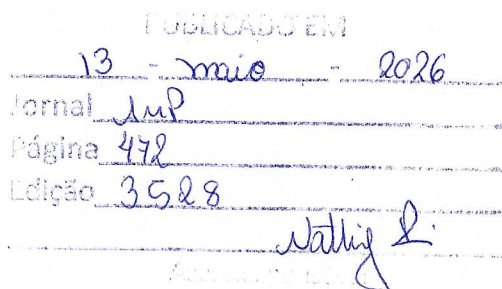 PUBLICADO EM
13 - maio - 2026
Jornal AMP
Página 472
Edição 3528